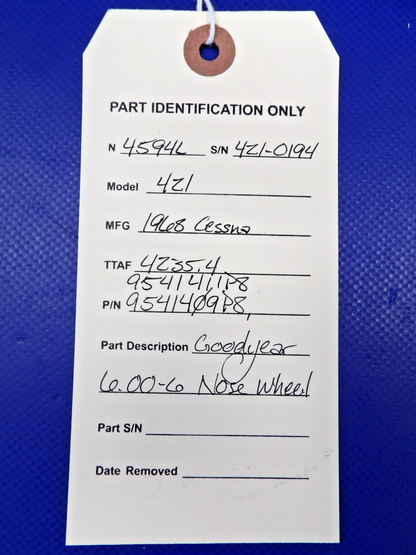 PART IDENTIFICATION ONLY
N 4594L S/N 421-0194
Model 421
MFG 1968 Cessna
TTAF 4235.4
9541411P8
P/N 9541409P8,
Part Description Goodyear
6.00-6 Nose Wheel
Part S/N
Date Removed